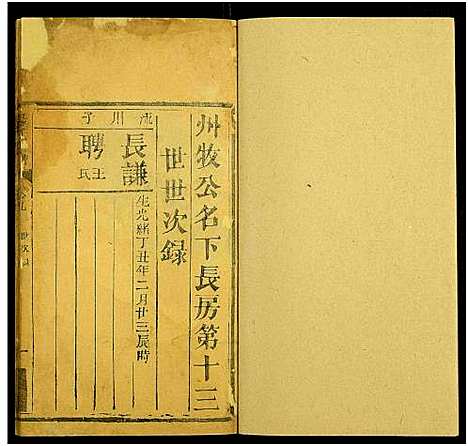 州牧公名下長房第十三
世世次録
沇川子
長謙
生光緒丁丑年二月廿三辰時
聘王氏